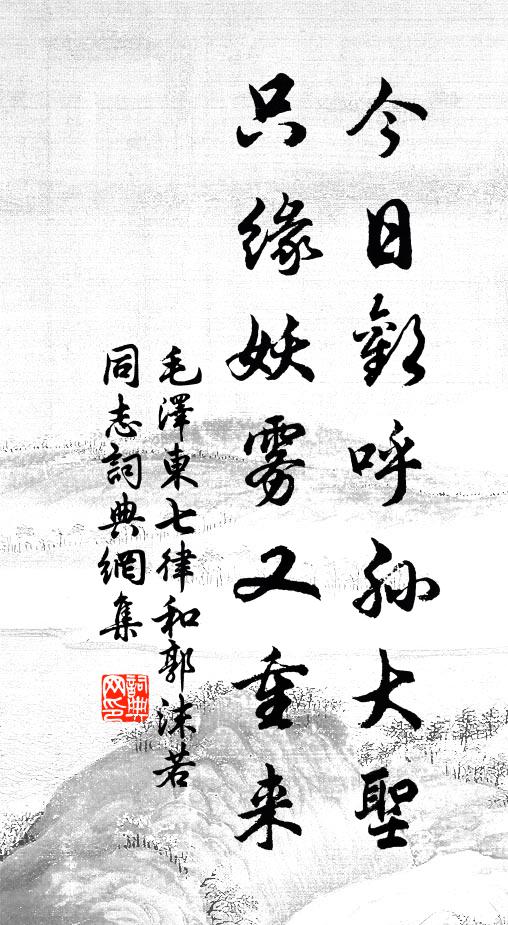 今日歡呼孫大聖
只緣妖霧又重来
毛澤東七律和郭沫若
同志詞典網集
詞典网印